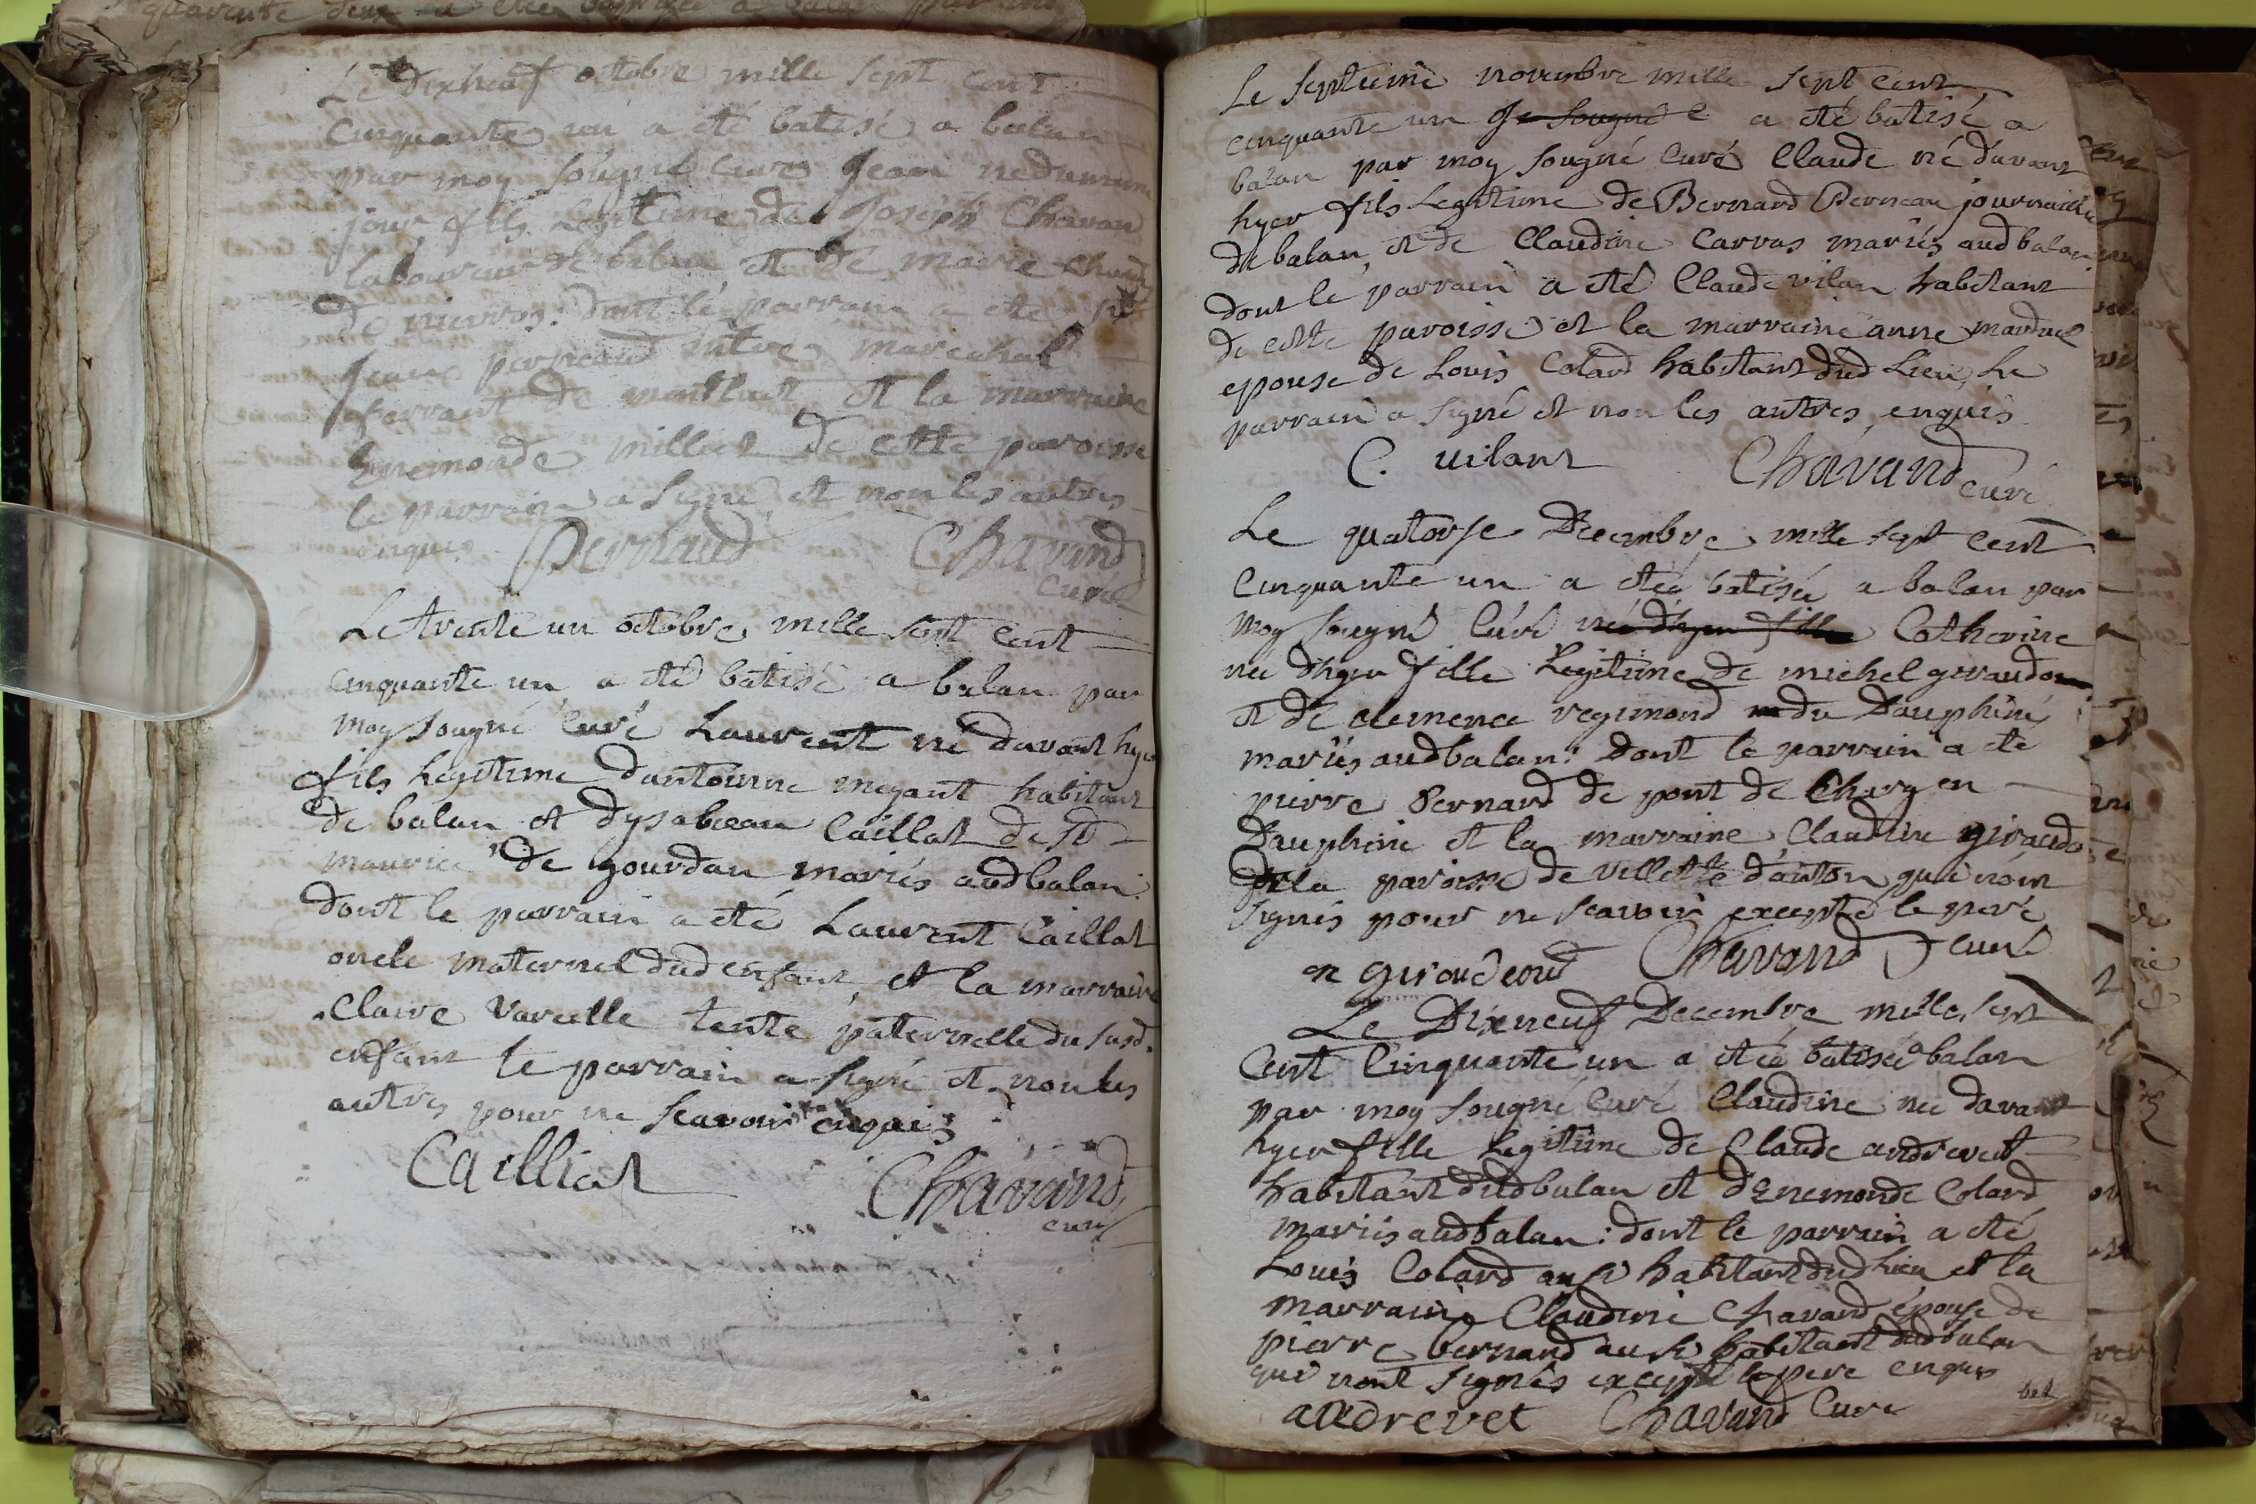 Le dixneuf octobre mille sept cent
cinquante un a été batisé a balan
par moy sougné curé Jean né du meme
jour fils Legitime de Joseph Chavan
laboureur de balan et de marie
de nievroz: dont le parrain a eté
Jean perneaud maitre marechal
ferrant de montluel et la marraine
Enemonde milliet de cette paroisse
le parrain a signé et non les autres
enquis Pernaud Chavand
curé
Le trente un octobre mille sept cent
cinquante un a eté batisé a balan par
moy sougné curé Laurent né davant hyer
fils Legitime dantoinne megant habitant
de balan et dysabeau Caillat de St
maurice de gourdan mariés aud balan:
dont le parrain a eté Laurent Caillat
oncle maternel dud enfant, et la marraine
Claire varcelle tente paternelle du susd.
enfant le parrain a signé et non les
autres pour ne scavoir enquis
Cailliat Chavand
curé
Le septieme novembre mille sept cent
cinquante un a eté batisé a
balan par moy sougné curé Claude né davant
hyer fils Legitime de Bernard Perneau journailier
de balan et de Claudine Carvas mariés aud balan
dont le parrain a eté Claude vilan habitant
de cette paroisse et la marraine anne marduel
epouse de Louis Colard habitant dud Lieu, Le
parrain a signé et non les autres enquis
C. vilant Chavand
curé
Le quatorse Decembre mille sept cent
cinquante un a etée batisée a balan par
moy sougné Curé née dhyer fille Catherine
née dhyer fille Legitime de michel giraudon
et de clemence regimond du Dauphiné
mariés aud balan: Dont le parrain a eté
pierre Bernard de pont de Chery en
Dauphiné et la marraine Claudine giraudo
de la paroisse de villette d'anton qui n'ont
signés pour ne scavoir excepté le pere
Chavand curé
Le Dixneuf Decembre mille sept
Cent Cinquante un a etée batisée a balan
par moy sougné Curé Claudine née davant
hyer fille Legitime de Claude andrevet
habitant dud balan et d'Enemonde Colard
mariés aud balan: dont le parrain a eté
Louis Colard aussi habitant dud Lieu et la
marraine Claudine Chavand épouse de
pierre bernard aussi habitant dud balan
qui n'ont signés excepté le pere enquis
andrevet Chavand Curé